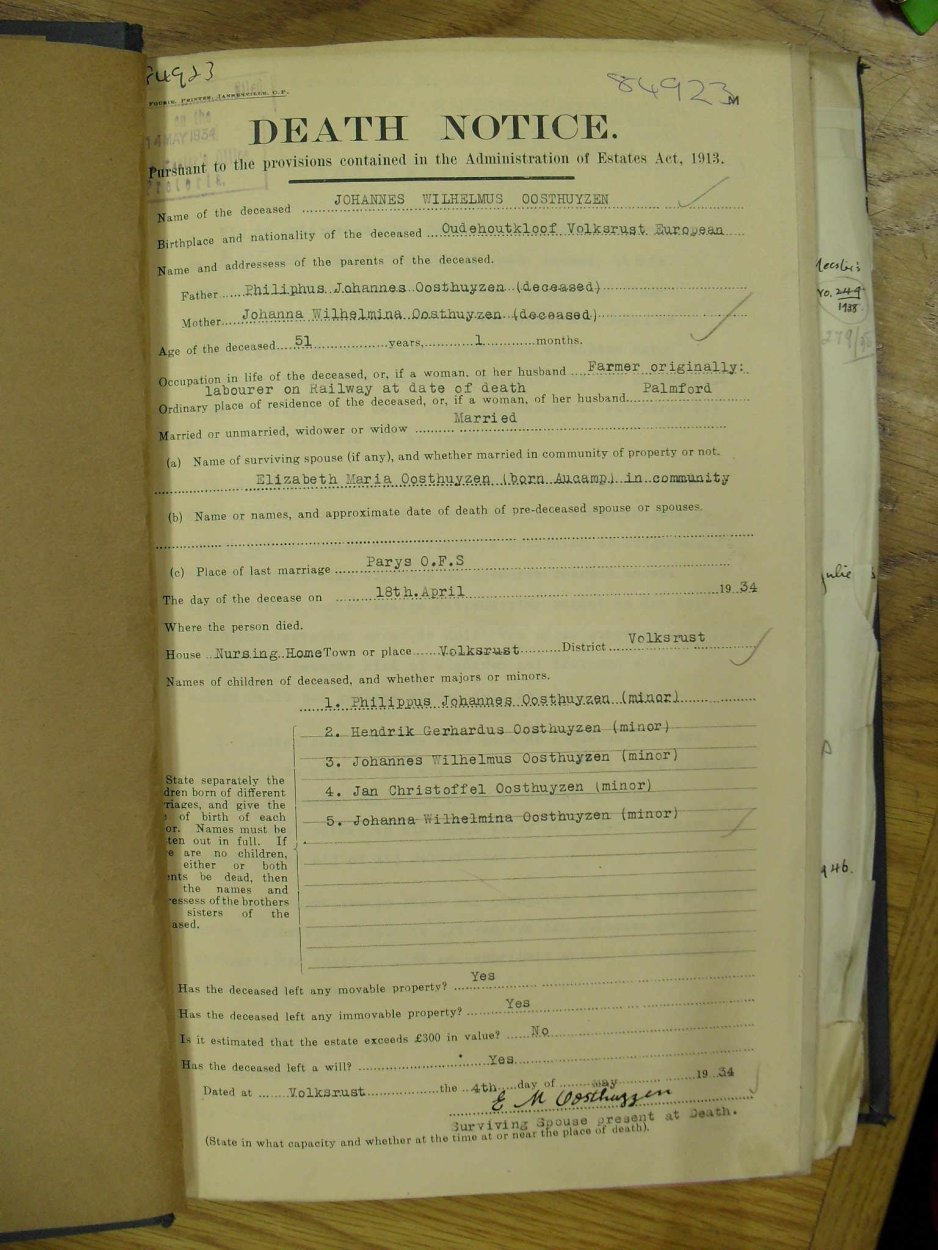 84923
84923
M
FOURIE, PRINTER, JANSENVILLE, C.P.
14 MAY 1934
DEATH NOTICE.
Pursuant to the provisions contained in the Administration of Estates Act, 1913.
Name of the deceased JOHANNES WILHELMUS OOSTHUYZEN
Birthplace and nationality of the deceased Oudehoutkloof Volksrust European
Name and addressess of the parents of the deceased.
Father Philiphus Johannes Oosthuyzen (deceased)
Mother Johanna Wilhelmina Oosthuyzen (deceased)
Age of the deceased 51 years, 1 months.
Occupation in life of the deceased, or, if a woman, of her husband Farmer originally:
labourer on Railway at date of death Palmford
Ordinary place of residence of the deceased, or, if a woman, of her husband
Married or unmarried, widower or widow Married
(a) Name of surviving spouse (if any), and whether married in community of property or not.
Elizabeth Maria Oosthuyzen (born Aucamp) in community
(b) Name or names, and approximate date of death of pre-deceased spouse or spouses.
(c) Place of last marriage Parys O.F.S
The day of the decease on 18th.April 19 34
Where the person died.
House Nursing Home Town or place Volksrust District Volksrust
Names of children of deceased, and whether majors or minors.
1. Philippus Johannes Oosthuyzen (minor)
2. Hendrik Gerhardus Oosthuyzen (minor)
3. Johannes Wilhelmus Oosthuyzen (minor)
4. Jan Christoffel Oosthuyzen (minor)
5. Johanna Wilhelmina Oosthuyzen (minor)
State separately the
dren born of different
riages, and give the
of birth of each
or. Names must be
ten out in full. If
e are no children,
either or both
nts be dead, then
the names and
ressess of the brothers
sisters of the
ased.
Has the deceased left any movable property? Yes
Has the deceased left any immovable property? Yes
Is it estimated that the estate exceeds £300 in value? No
Has the deceased left a will? Yes
Dated at Volksrust the 4th day of May 19 34
E M Oosthuyzen
Surviving Spouse present at Death.
(State in what capacity and whether at the time at or near the place of death).
249
1938
946.